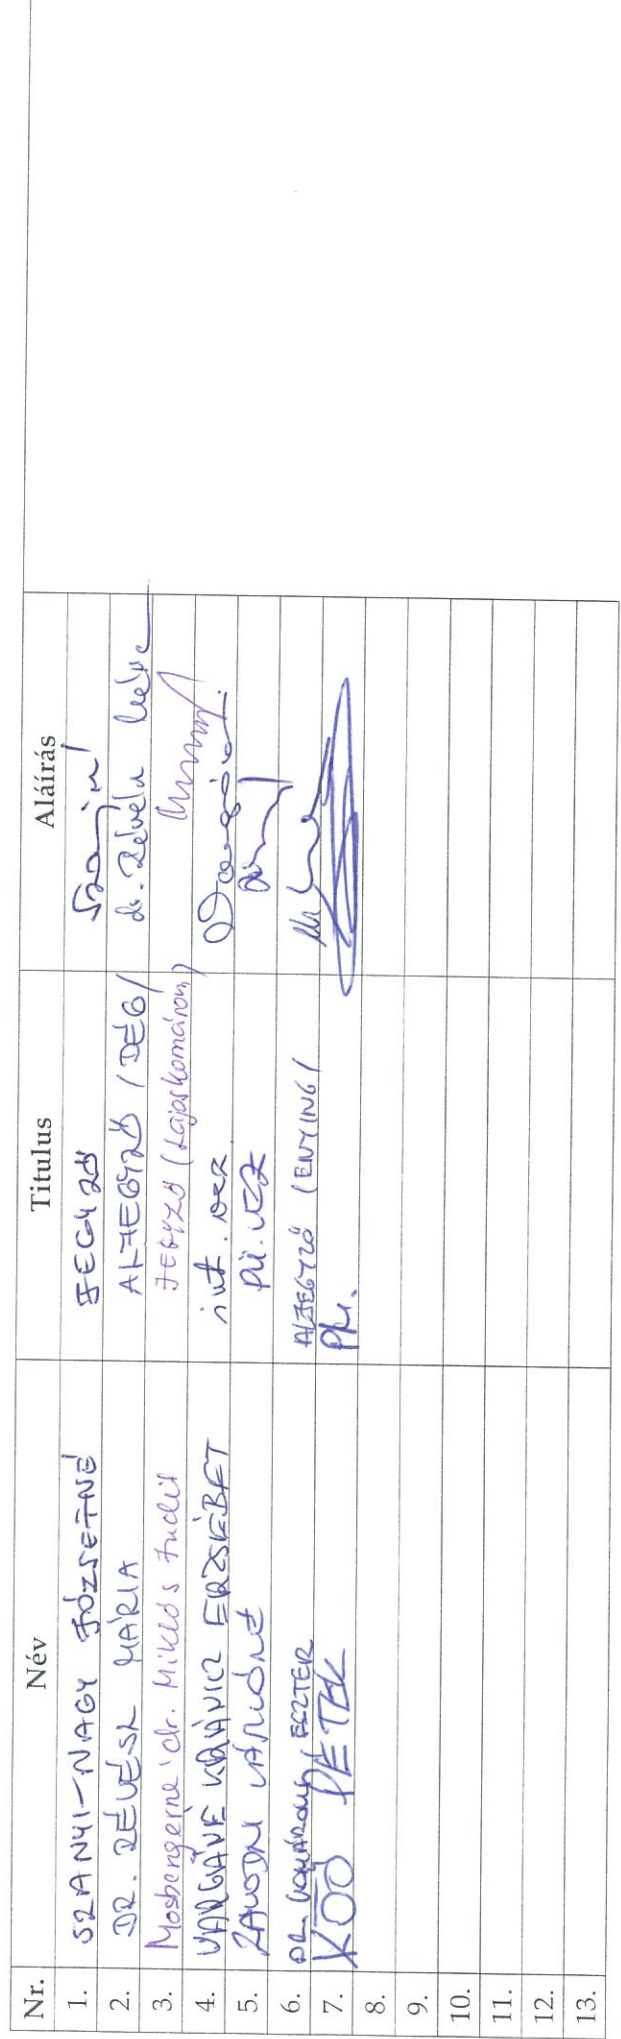 Nr. Név Titulus Aláírás
1. SZANYI-NAGY JÓZSEFNÉ JEGYZŐ
2. DR. RÉVÉSZ MÁRIA ALJEGYZŐ (DÉG)
3. Mosbergerné dr. Miklós Judit JEGYZŐ (Lajoskomárom)
4. VARGÁNÉ KRÁNICZ ERZSÉBET int. vez.
5. ZÁVODNI LÁSZLÓNÉ PÜ. VEZ
6. DR. KOMÁROMI ESZTER ALJEGYZŐ (ENYING)
7. KOÓ PÉTER PM.
8.
9.
10.
11.
12.
13.